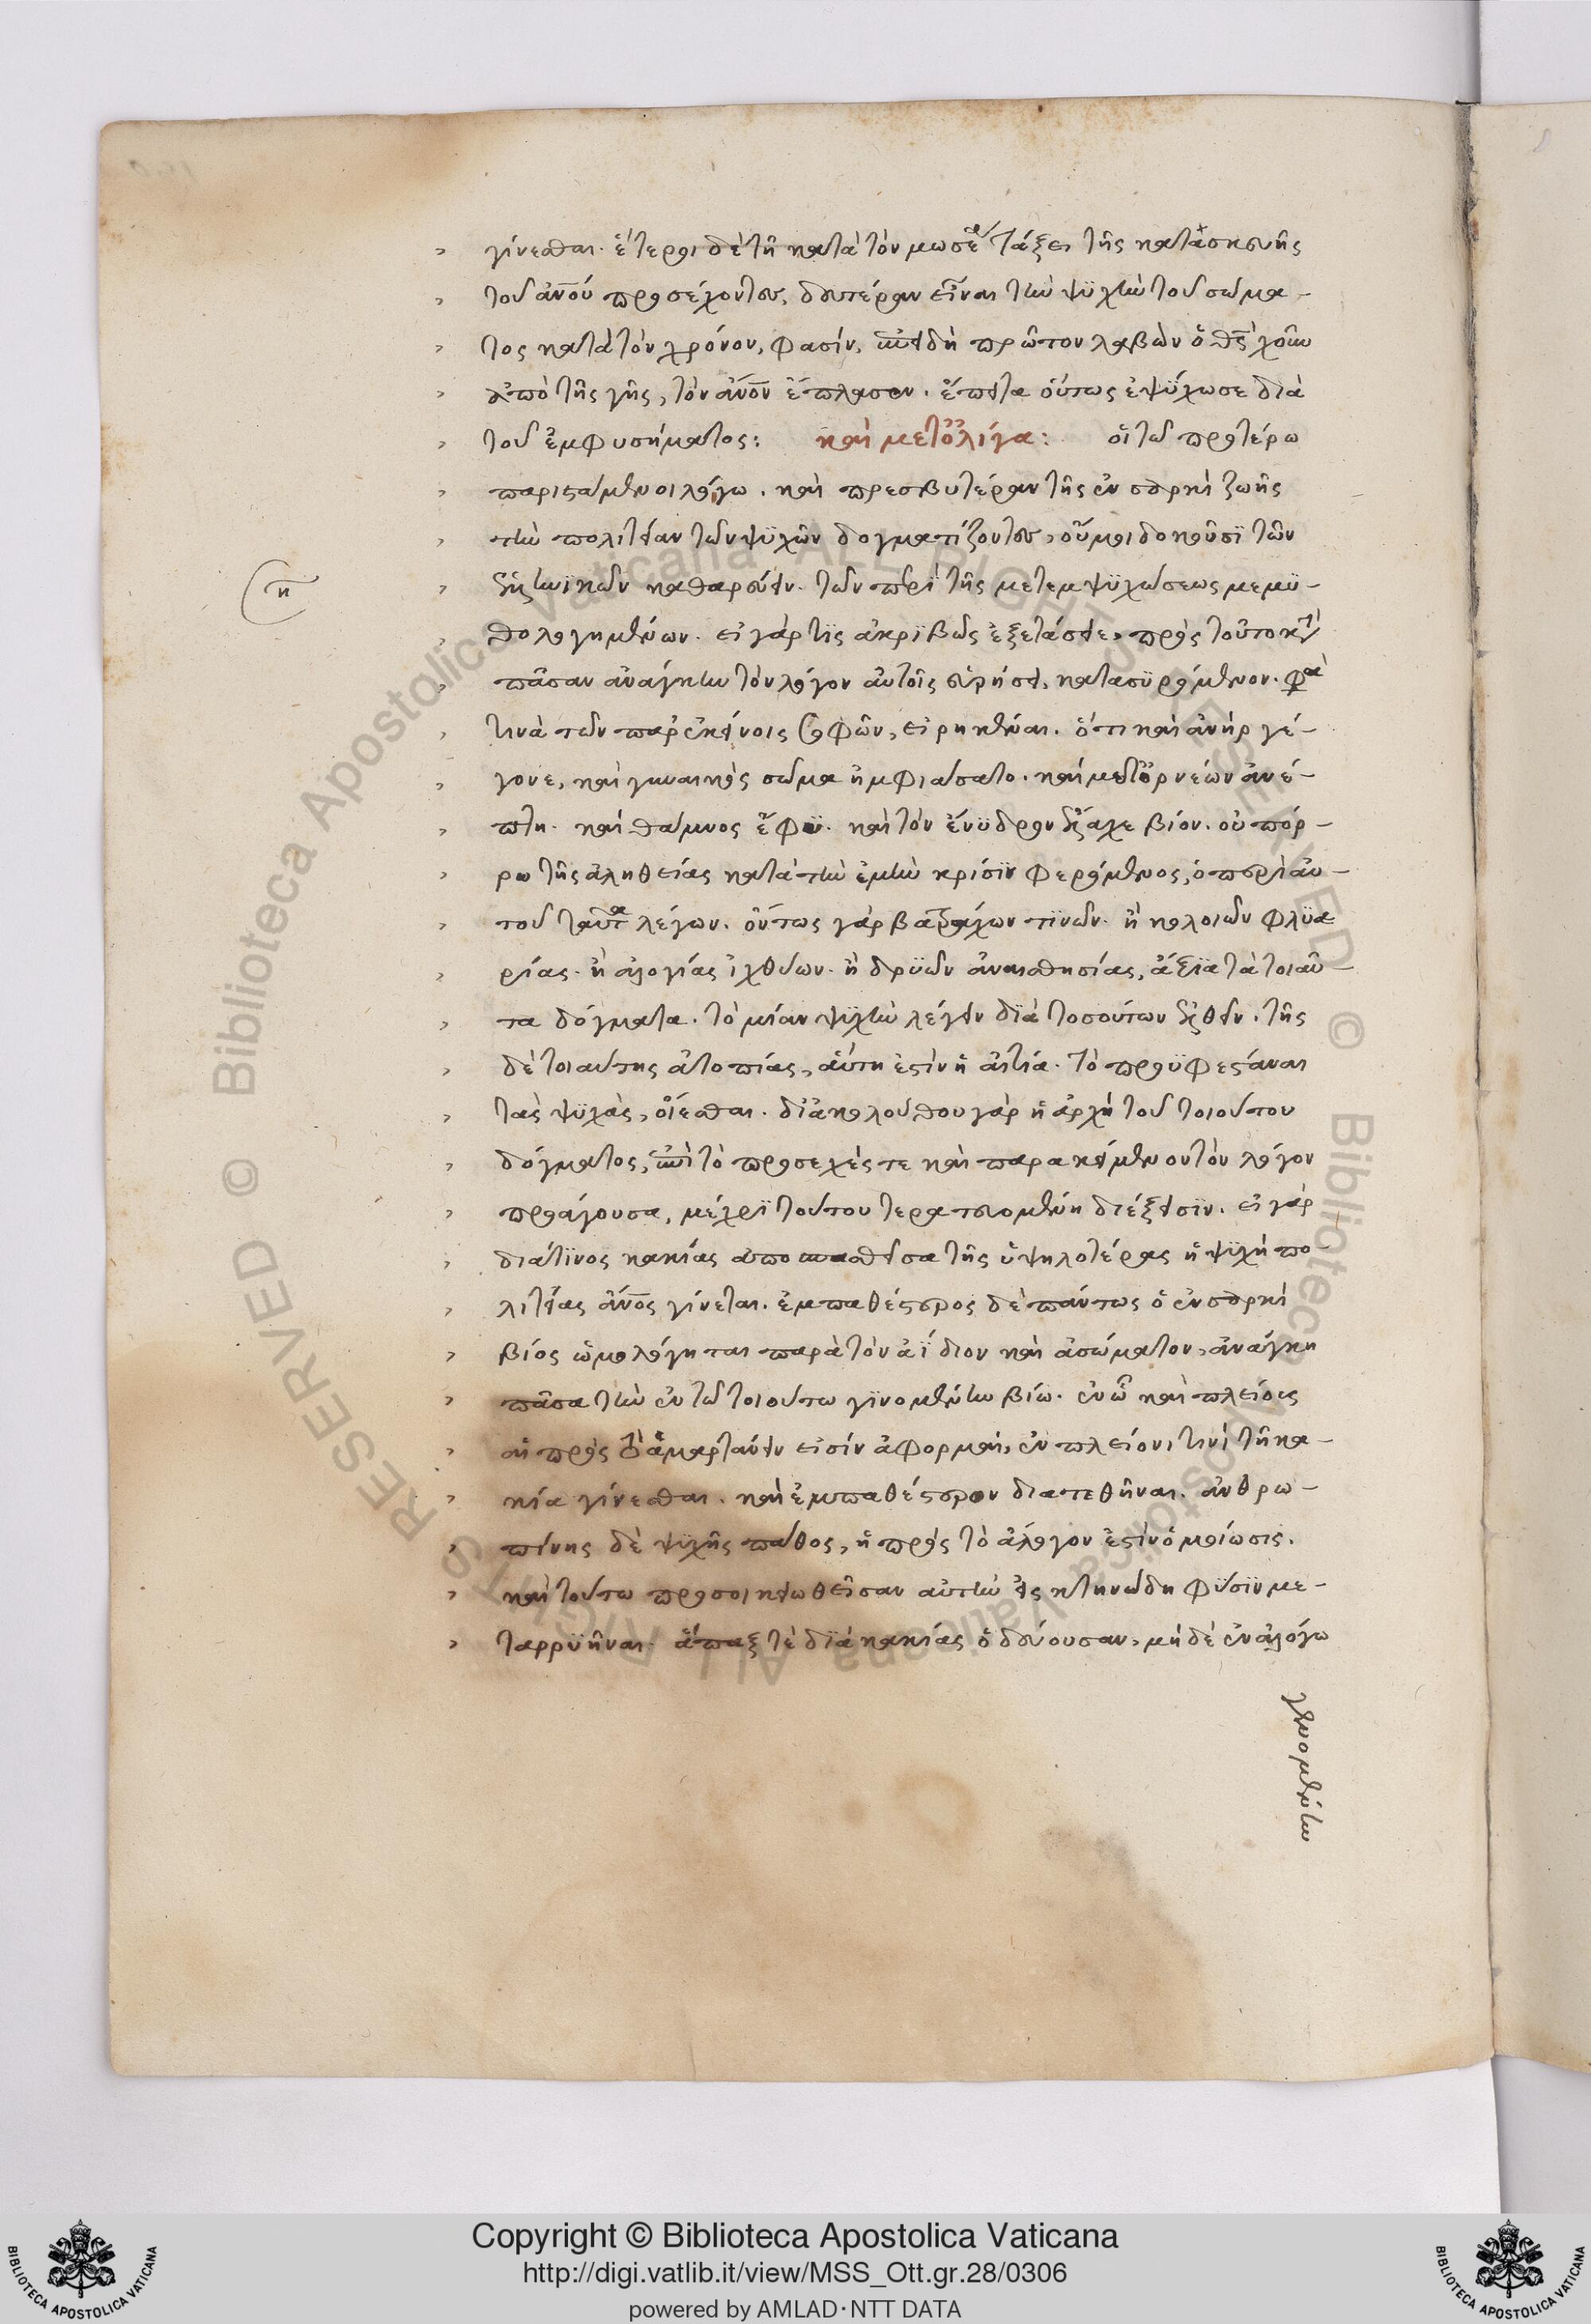 γίνεσθαι. ἕτεροι δὲ τῆ κατὰ τὸν μωσέα τάξει τῆς κατασκευῆς
τοῦ ἀνου προσέχοντες, δευτέραν εἶναι τὴν ψυχὴν τοῦ σώμα-
τος κατὰ τὸν χρόνον, φασίν, ἐπειδὴ πρῶτον λαβὼν ὁ θς χοῦν
ἀπὸ τῆς γῆς, τὸν ἀνον ἔπλασεν. ἔπειτα οὕτως ἐψύχωσε διὰ
τοῦ ἐμφυσήματος: καὶ μετ' ὀλίγα: οἱ τῶ προτέρω
παριστάμενοι λόγω. καὶ πρεσβυτέραν τῆς ἐν σαρκὶ ζωῆς
τὴν πολιτείαν τῶν ψυχῶν δογματίζοντες, οὔ μοι δοκοῦσι τῶν
η
ἑλληνικῶν καθαρεύειν. τῶν περὶ τῆς μετεμψυχώσεως μεμυ-
θολογημένων. εἰ γάρ τις ἀκριβῶς ἐξετάσειε, πρὸς τοῦτο κατὰ
πᾶσαν ἀνάγκην τὸν λόγον αὐτοῖς εὑρήσει, κατασυρόμενον. φασὶ
τινὰ τῶν παρ' ἐκείνοις σοφῶν, εἰρηκέναι. ὅτι καὶ ἀνὴρ γέ-
γονε, καὶ γυναικὸς σῶμα ἠμφιάσατο. καὶ μετ' ὀρνέων ἀνέ-
πτη. καὶ θάμνος ἔφυ. καὶ τὸν ἔνυδρον ἔλαχε βίον. οὐ πόρ-
ρω τῆς ἀληθείας κατὰ τὴν ἐμὴν κρίσιν φερόμενος, ὁ περὶ αὐ-
τοῦ ταῦτα λέγων. ὄντως γὰρ βατράχων τινῶν. ἢ κολοιῶν φλυα
ρίας. ἢ ἀλογίας ἰχθύων. ἢ δρυῶν ἀναισθησίας, ἄξια τὰ τοιαῦ-
τα δόγματα. τὸ μίαν ψυχὴν λέγειν διὰ τοσούτων ἐλθεῖν. τῆς
δὲ τοιαύτης ἀτοπίας, αὕτη ἐστὶν ἡ αἰτία. τὸ προϋφεστάναι
τὰς ψυχὰς, οἴεσθαι. δι' ἀκολούθου γὰρ ἡ ἀρχὴ τοῦ τοιούτου
δόγματος, ἐπὶ τὸ προσεχές τε καὶ παρακείμενον τὸν λόγον
προάγουσα, μέχρι τούτου τερατευομένη διέξεισιν. εἰ γὰρ
διά τινος κακίας ἀποσπασθεῖσα τῆς ὑψηλοτέρας ἡ ψυχὴ πο-
λιτείας ἀνος γίνεται. ἐμπαθέστερος δὲ πάντως ὁ ἐν σαρκὶ
βίος ὡμολόγηται παρὰ τὸν ἀΐδιον καὶ ἀσώματον, ἀνάγκη
πᾶσα τὴν ἐν τῶ τοιούτω γινομένην βίω. ἐν ᾧ καὶ πλείους
αἱ πρὸς τὸ ἁμαρτάνειν εἰσὶν ἀφορμαί, ἐν πλείονι τινὶ τῆ κα-
κία γίνεσθαι. καὶ ἐμπαθέστερον διατεθῆναι. ἀνθρω-
πίνης δὲ ψυχῆς πάθος, ἡ πρὸς τὸ ἄλογον ἐστὶν ὁμοίωσις.
καὶ τούτω προσοικειωθεῖσαν αὐτὴν εἰς κτηνώδη φύσιν με-
ταρρυῆναι. ἅπαξ τὲ διὰ κακίας ὁδεύουσαν, μὴ δὲ ἐν ἀλόγω
γενομένην
Copyright © Biblioteca Apostolica Vaticana
http://digi.vatlib.it/view/MSS_Ott.gr.28/0306
powered by AMLAD·NTT DATA